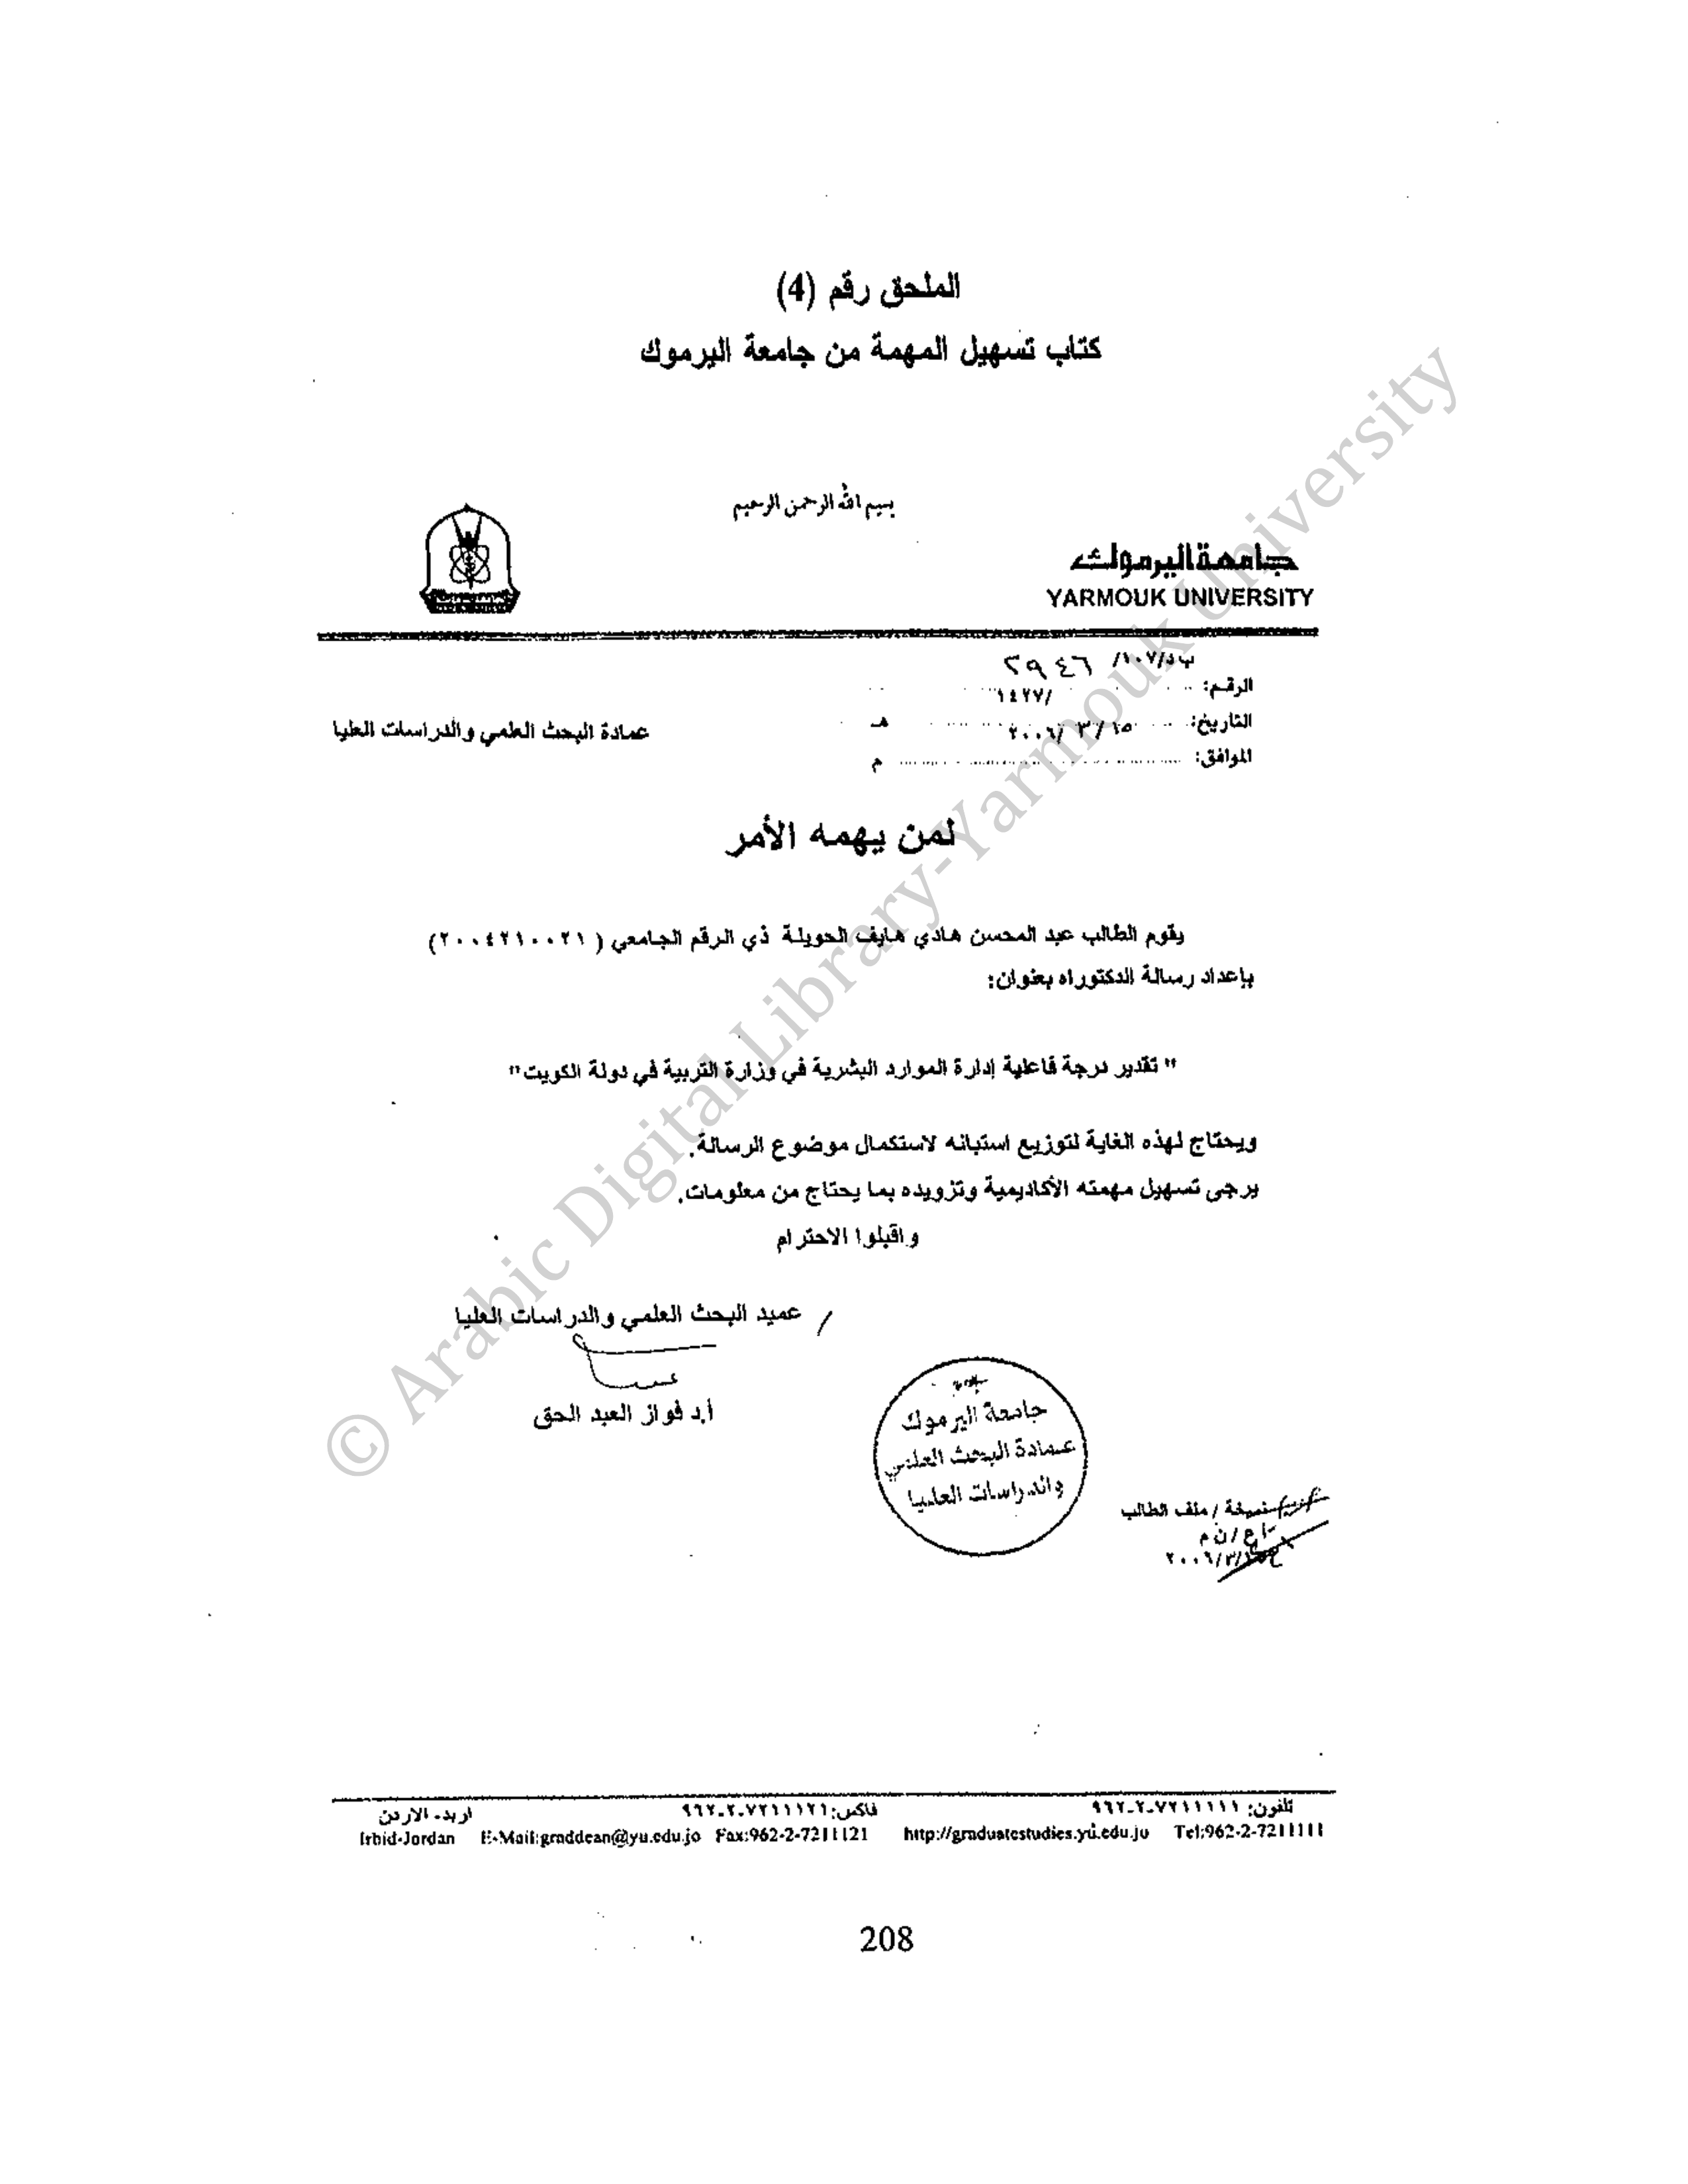 الملحق رقم (4)
كتاب تسهيل المهمة من جامعة اليرموك
بسم الله الرحمن الرحيم
جامعة اليرموك
YARMOUK UNIVERSITY
ب د/١٠٧/ ٢٩٤٦
الرقم:
/١٤٢٧
التاريخ: ١٥/ ٣ /٢٠٠٦ هـ
الموافق: م
عمادة البحث العلمي والدراسات العليا
لمن يهمه الأمر
يقوم الطالب عبد المحسن هادي هايف الحويلة ذي الرقم الجامعي (٢٠٠٤٢١٠٠٢١)
بإعداد رسالة الدكتوراه بعنوان:
" تقدير درجة فاعلية إدارة الموارد البشرية في وزارة التربية في دولة الكويت"
ويحتاج لهذه الغاية لتوزيع استبانه لاستكمال موضوع الرسالة.
يرجى تسهيل مهمته الأكاديمية وتزويده بما يحتاج من معلومات.
واقبلوا الاحترام
/ عميد البحث العلمي والدراسات العليا
أ.د فواز العبد الحق
جامعة اليرموك
عمادة البحث العلمي
والدراسات العليا
نسخة / ملف الطالب
ن م
٢٠٠٦/٣/١٥
تلفون: ٩٦٢-٢-٧٢١١١١١ فاكس: ٩٦٢-٢-٧٢١١١٢١ اربد - الاردن
Irbid-Jordan E-Mail:graddean@yu.edu.jo Fax:962-2-7211121 http://graduatestudies.yu.edu.jo Tel:962-2-7211111
208
© Arabic Digital Library-Yarmouk University